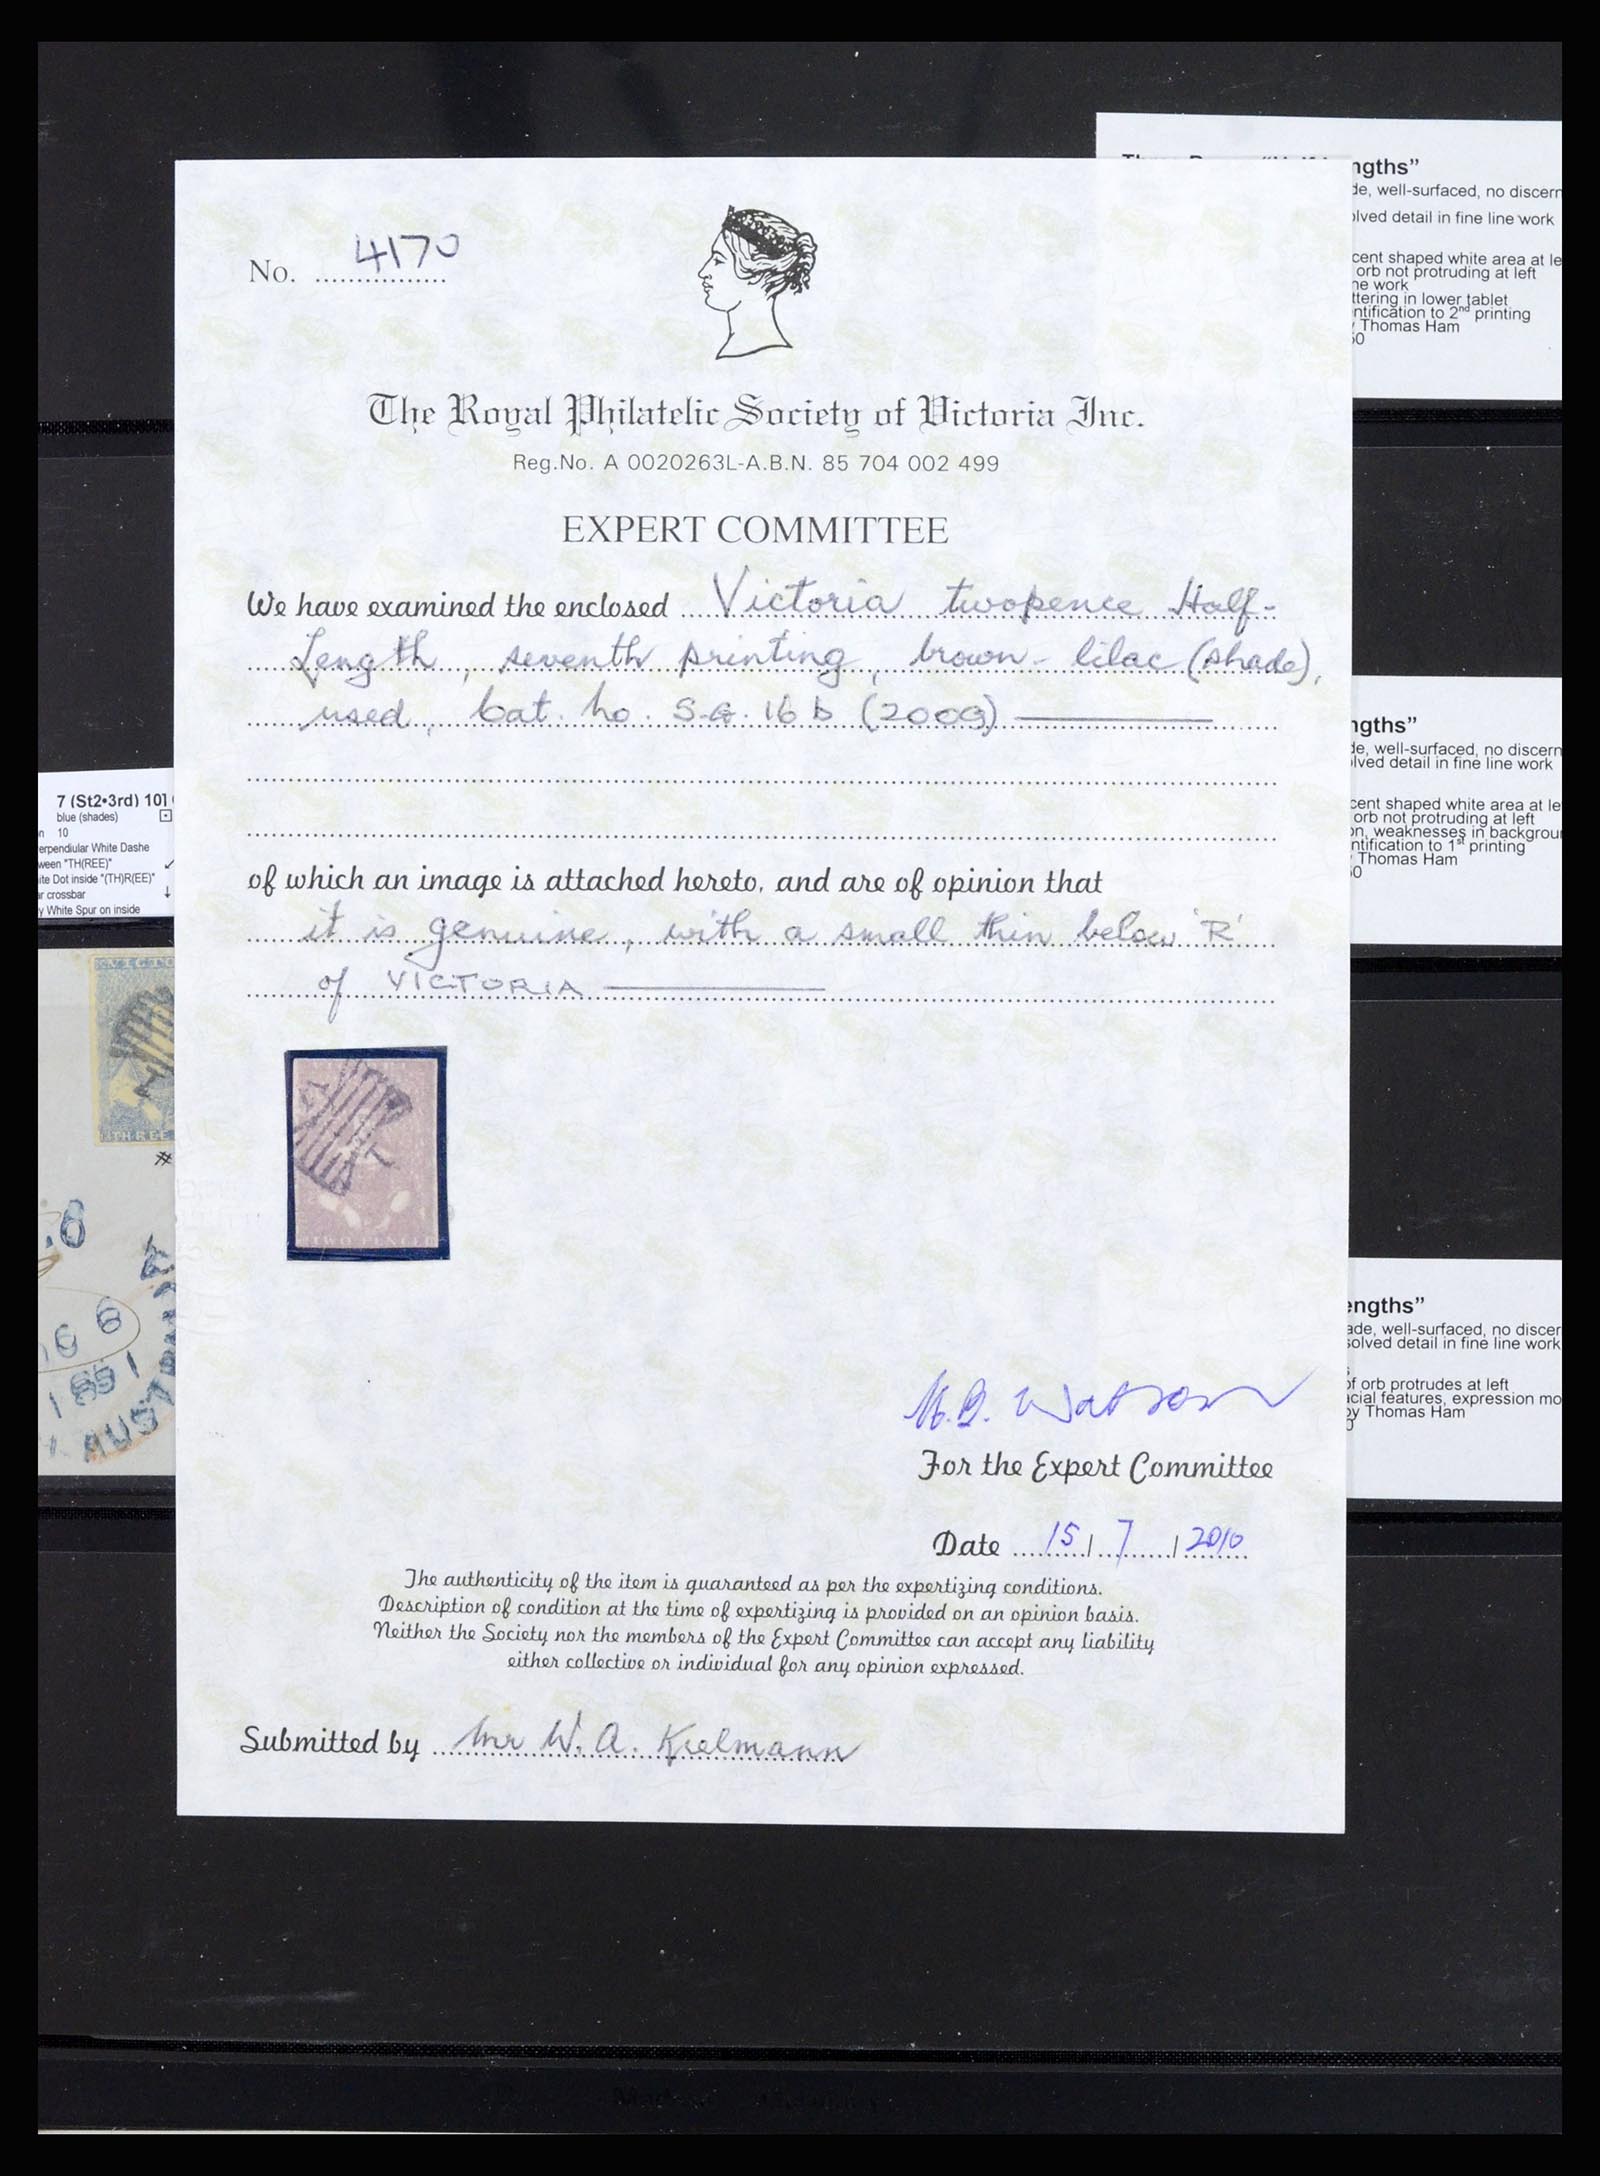 No. 4170
The Royal Philatelic Society of Victoria Inc.
Reg.No. A 0020263L-A.B.N. 85 704 002 499
EXPERT COMMITTEE
We have examined the enclosed Victoria twopence Half-
Length, seventh printing, brown-lilac (shade),
used, Cat. No. S.G. 16b (2009)
of which an image is attached hereto, and are of opinion that
it is genuine, with a small thin below 'R'
of VICTORIA
TWO PENCE
Watson
For the Expert Committee
Date 15/7/2010
The authenticity of the item is guaranteed as per the expertizing conditions.
Description of condition at the time of expertizing is provided on an opinion basis.
Neither the Society nor the members of the Expert Committee can accept any liability
either collective or individual for any opinion expressed.
Submitted by Mr W. A. Kielmann
7 (St2•3rd) 10]
blue (shades)
n 10
erpendiular White Dashe
ween "TH(REE)"
ite Dot inside "(TH)R(EE)"
ar crossbar
y White Spur on inside
VICTO
THREE
#
1851
AUST
ngths”
de, well-surfaced, no discern
olved detail in fine line work
cent shaped white area at le
orb not protruding at left
ne work
ttering in lower tablet
ntification to 2nd printing
Thomas Ham
50
ngths”
de, well-surfaced, no discern
olved detail in fine line work
cent shaped white area at le
orb not protruding at left
on, weaknesses in backgrou
ntification to 1st printing
Thomas Ham
50
engths”
ade, well-surfaced, no discer
solved detail in fine line work
of orb protrudes at left
acial features, expression mo
by Thomas Ham